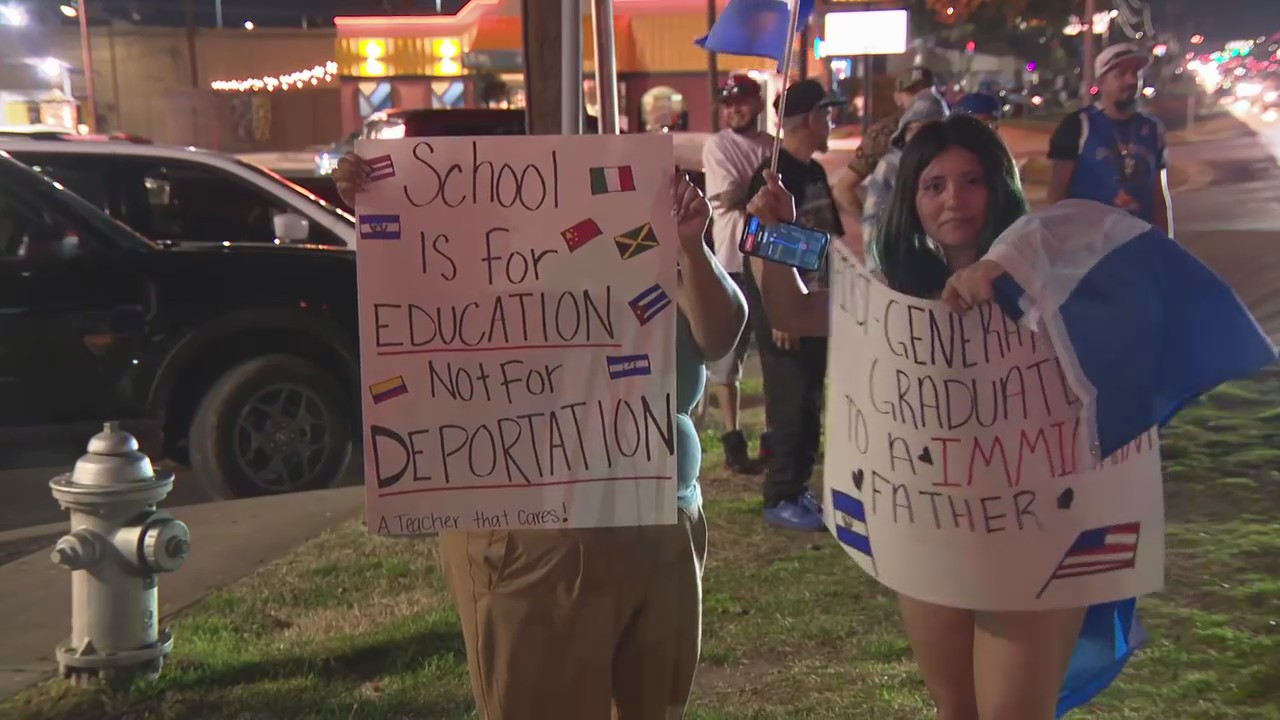 School
IS for
EDUCATION
Not For
DEPORTATION
A Teacher that Cares!
GRADUATE
TO A IMMIGRANT
FATHER